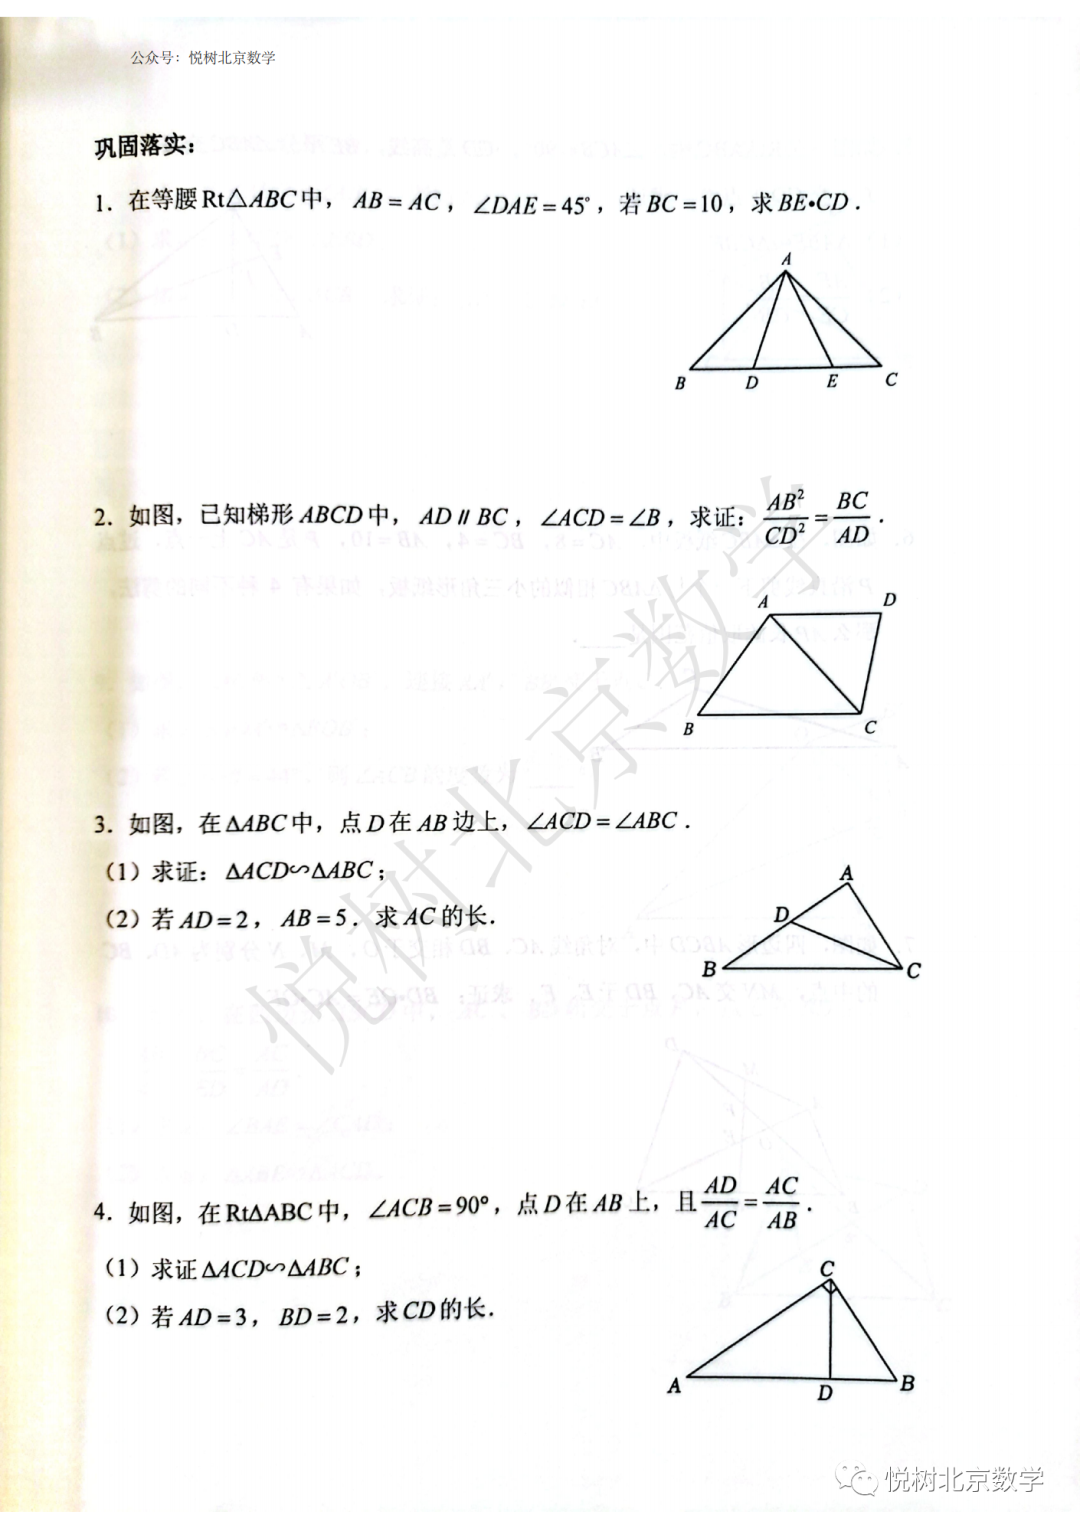 公众号：悦树北京数学
巩固落实：
1. 在等腰 Rt△ABC 中， AB = AC ， ∠DAE = 45° ，若 BC = 10 ，求 BE•CD ．
A
B D E C
2. 如图，已知梯形 ABCD 中， AD ∥ BC ， ∠ACD = ∠B ，求证： AB²/CD² = BC/AD ．
A D
B C
3. 如图，在 ΔABC 中，点 D 在 AB 边上， ∠ACD = ∠ABC ．
（1）求证： ΔACD∽ΔABC ；
（2）若 AD = 2 ， AB = 5 ．求 AC 的长．
A
D
B C
4. 如图，在 RtΔABC 中， ∠ACB = 90° ，点 D 在 AB 上，且 AD/AC = AC/AB ．
（1）求证 ΔACD∽ΔABC ；
（2）若 AD = 3 ， BD = 2 ，求 CD 的长．
C
A D B
悦树北京数学
悦树北京数学